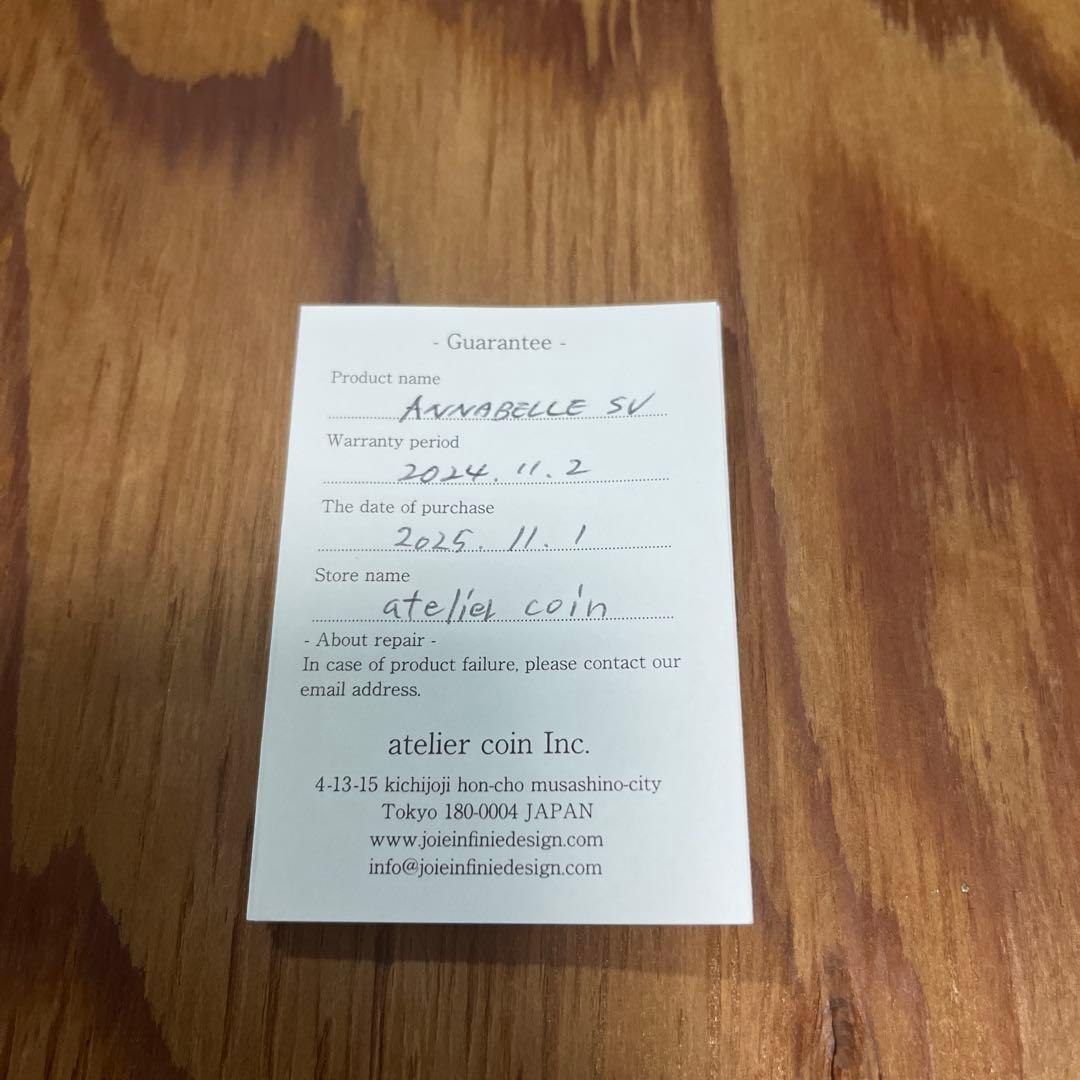 - Guarantee -
Product name
ANNABELLE SV
Warranty period
2024. 11. 2
The date of purchase
2025. 11. 1
Store name
atelier coin
- About repair -
In case of product failure, please contact our
email address.
atelier coin Inc.
4-13-15 kichijoji hon-cho musashino-city
Tokyo 180-0004 JAPAN
www.joieinfiniedesign.com
info@joieinfiniedesign.com